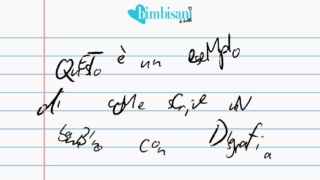 bimbisani
QUESTO è un esempio
di come scrive UN
bambino con Disgrafia